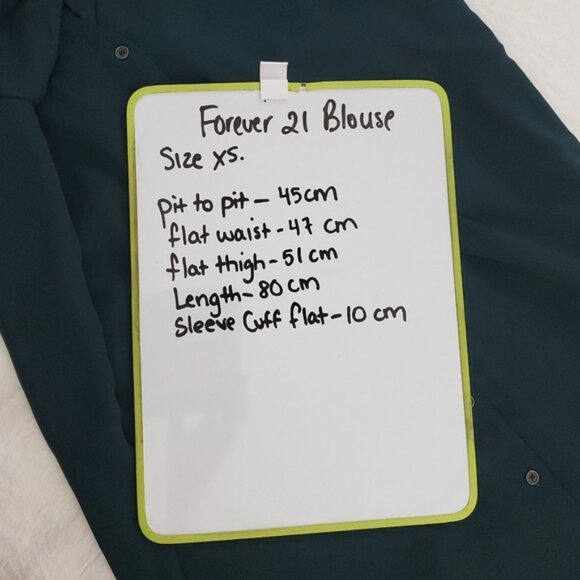 Forever 21 Blouse
Size XS.
pit to pit - 45cm
flat waist - 47 cm
flat thigh - 51 cm
Length - 80 cm
Sleeve Cuff flat - 10 cm